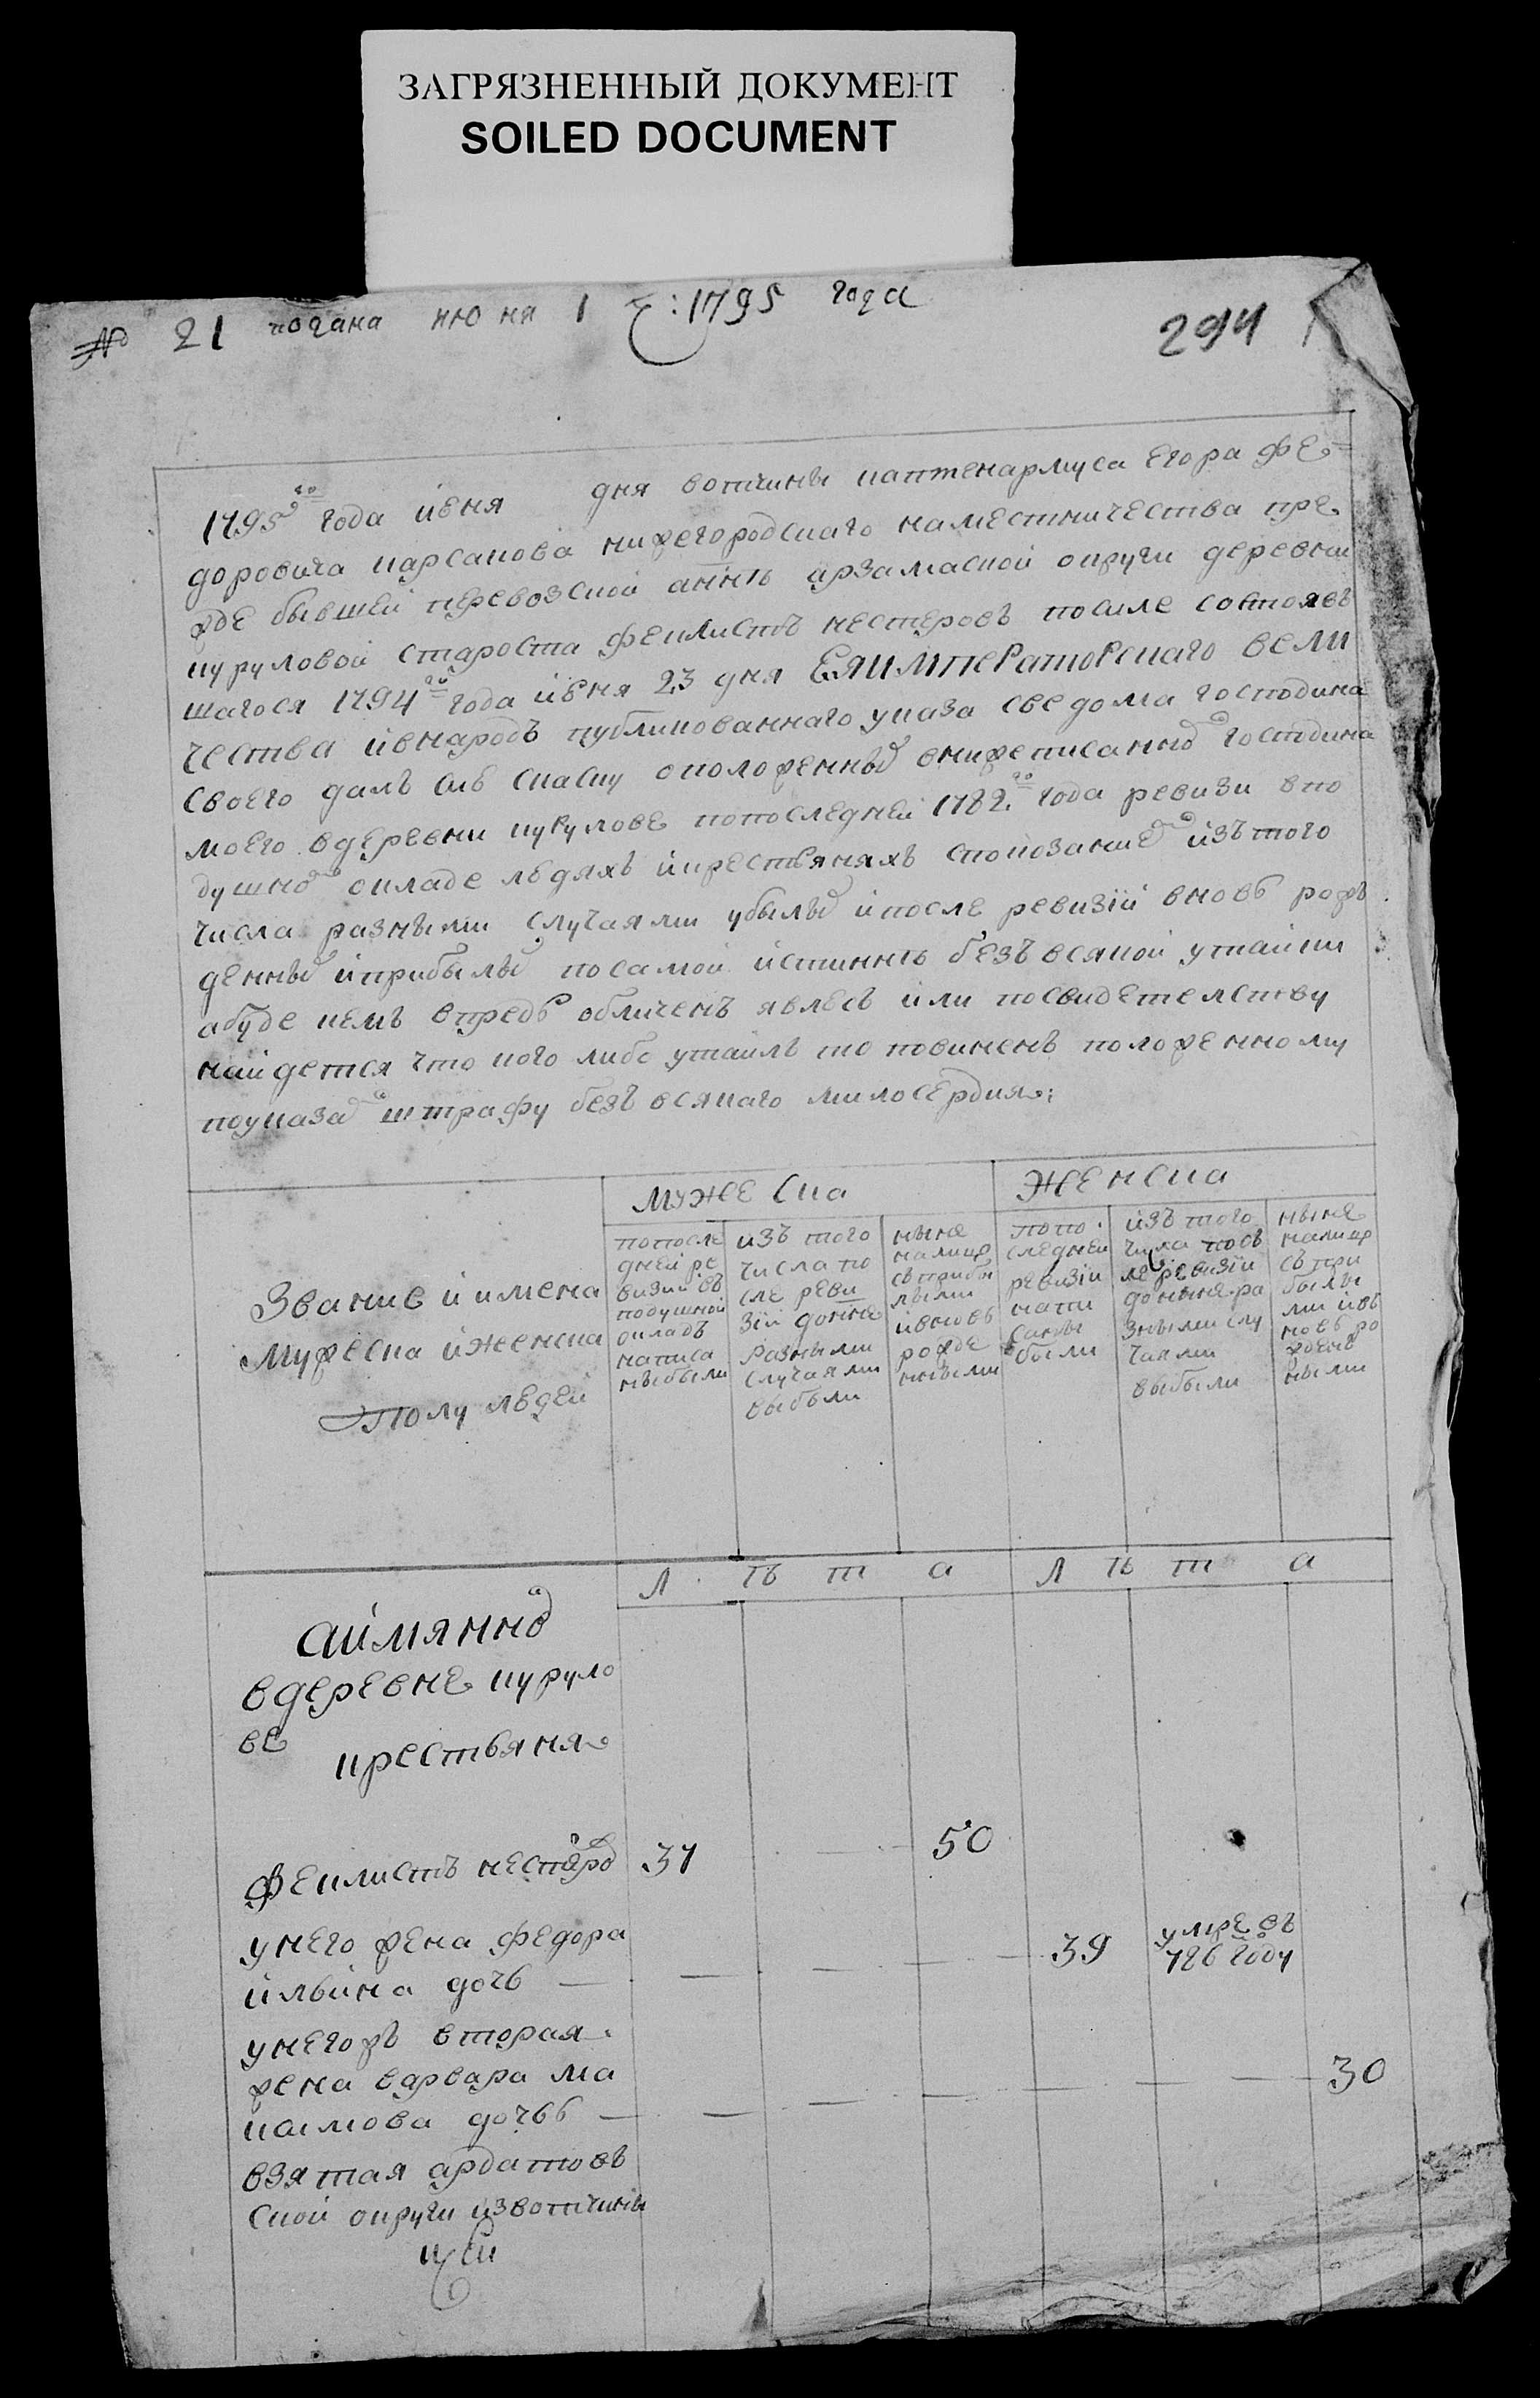 ЗАГРЯЗНЕННЫЙ ДОКУМЕНТ
SOILED DOCUMENT
№ 21 подана июня 1 ч: 1795 года
294
1795го года июня дня вотчины каптенармуса Егора Фе=
доровича карсакова нижегородскаго наместничества пре
жде бывшей перевозской аннѣ арзамаской округи деревни
журловой староста феклистъ нестеровъ посиле состояв
шагося 1794го года июня 23 дня ЕЯИМПЕРаторскаго вели
чества ивнародъ публикованнаго указа сведома господина
своего далъ сию скаску оположенных внижеписанной господина
моего вдеревни журлове попоследней 1782го года ревизи впо
душной окладе людяхъ икрестьянахъ спопозание изътого
числа разными случаями убылых ипосле ревизiи вновь рож
денных иприбылых посамой истиннѣ безъ всякой утайки
абуде чемъ впредь обличенъ явлюсь или посвидетелству
найдется что кого либо утаилъ то повиненъ положенному
поуказам штрафу безъ всякаго милосердия:
мужеска
женска
Звание и имена
мужеска иженска
полу людей
попосле
дней ре
визии въ
подушной
окладъ
написа
ны были
изъ того
числа по
сле реви
зiи донне
разными
случаями
выбыли
ныне
налицо
съ прибы
лыми
ивновь
рожде
ными
попо
следней
ревизiи
напи
саны
были
изъ того
числа посъ
ле ревизiи
доныне ра
зными слу
чаями
выбыли
ныне
налицо
съ при
былы
ми ивъ
новь ро
жден
ными
л ѣ т а
л ѣ т а
аимянно
вдеревне журло
ве
крестьяня
феклистъ нестеров 37 50
унего жена федора
ильина дочь — 39 умре въ
786 году
унегожъ вторая
жена варвара ма
каимова дочь — 30
взятая ардатовъ
ской округи извотчины